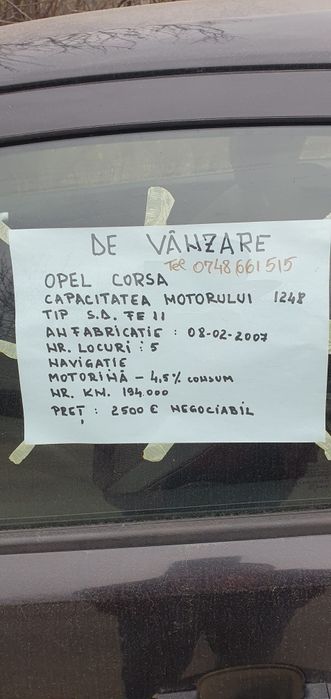 DE VÂNZARE
Tel 0748 661 515
OPEL CORSA
CAPACITATEA MOTORULUI 1248
TIP S.D. FE 11
AN FABRICATIE : 08-02-2007
NR. LOCURI : 5
NAVIGATIE
MOTORINĂ - 4,5% CONSUM
NR. KM. 194.000
PREȚ : 2500 € NEGOCIABIL